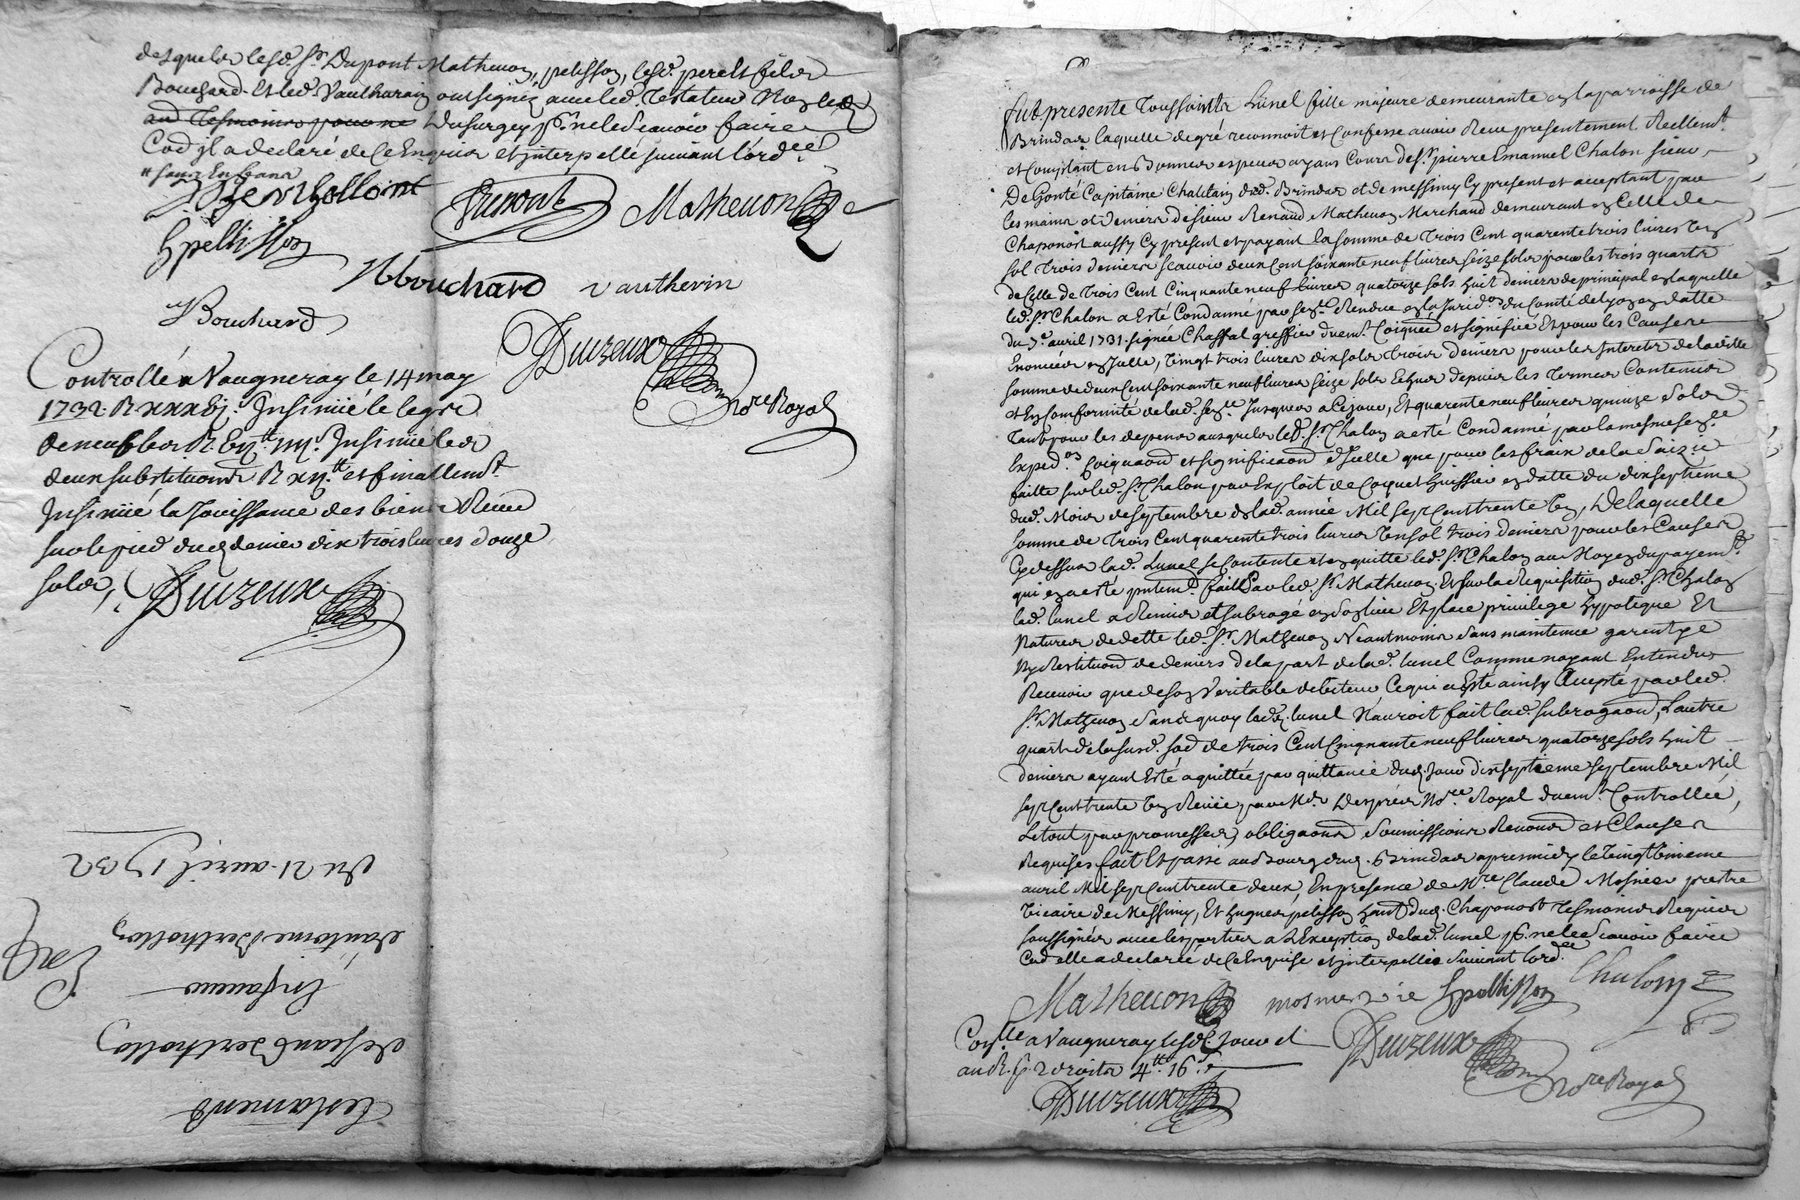 desquels lesd. Sr Dupont Matheuon, pelisson, lesd. pere et fils
Bouchard et led. Vautherin ont signéz avec led. testateur Non led.
and Tesmoins pour ne Dusurgey pr. ne le scauoir faire
Cod. jl a declaré de ce Enquis et jnterpellé suiuant l'ordce
J Berthollont
Dupont Matheuon
hpellisson
Nbouchard vautherin
Bouchard
Duizeux
no.re Royal
Controllé a Vaugneray le 14 may
1732. R Insinué le legs
de meubles R Insinué les
deux substituons R xij.tt et finallemt
Insinué la Jouissance des biens Reçeu
sur le pied du denier dix trois liures douze
sols,
Duizeux
Du 21 avril 1732
Testament
de Jean Berthollon
En faueur
d'antoine Berthollon
Exp
Fut presente Toussainte Lunel fille majeure demeurante en la parroisse de
Brindas laquelle de gré reconnoit et Confesse auoir Reçu presentement Reellemt
et Comptant en bonnes especes ayans Cours de Sr pierre Emanuel Chalon sieur
De Gonté Capitaine Chatelain dud. Brindas et de messimy Cy present et acceptant par
les mains et deniers de sieur Renaud Matheuon Marchand demeurant en Celle de
Chaponost aussy Cy present et payant la somme de Trois Cent quarente trois liures un
sol trois deniers scauoir deux Cent soixante neuf liures seize sols pour les trois quarts
de Celle de Trois Cent Cinquante neuf liures quatorze sols huit deniers de principal en laquelle
led. Sr Chalon a Esté Condamné par Rendue en la Juridon du Comté de Lyon en datte
du 7e avril 1731. signée Chaffal greffier duemt et signifiée Et pour les Causes
Enoncées en jcelle, vingt trois liures dix sols trois deniers pour les Interets de lad.
somme de deux Cent soixante neuf liures seize sols Echus depuis les termes Contenus
et En Conformité de lad. Jusques a Ce jour, Et quarente neuf liures quinze sols
Tant pour les depens ausquels led. Sr Chalon a esté Condamné par la mesme
Exped.on et signification d'Jcelle que pour les frais de la saizie
faitte sur led. Sr Chalon par Exploit de Coquet huissier en datte du dix septieme
dud. Mois de septembre lad. année Mil sept Cent trente un, De laquelle
somme de Trois Cent quarente trois liures un sol trois deniers pour les Causes
Cy dessus lad. Lunel se Contente et en quitte led. Sr Chalon au Moyen du payemt
qui en a esté faitt Par led. Sr Matheuon Et sur la Requisition dud. Sr Chalon
lad. lunel a Remis et subrogé en son lieu Et place priuilege hypoteque Et
Natures de dette led. Sr Matheuon Neantmoins sans maintenue garentye
Ny Restituon de deniers de la part de lad. lunel Comme n'ayant Entendu
Receuoir que de son veritable debiteur Ce qui a Esté ainsy accepté par led.
Sr Matheuon sans quoy lad. lunel N'auroit fait lad. subrogaon, L'autre
quart de la susd. so.e de trois Cent Cinquante neuf liures quatorze sols huit
deniers ayant Esté aquittée par quittance dud. jour dix septieme septembre Mil
sept Cent trente un Reçüe par Me Desprées No.re Royal duemt Controllée,
Le tout par promesses, obligaons, soumissions Renons et Clauses
Requises fait Et passé au Bourg dud. Brindas apresmidy le vingt unieme
auril Mil sept Cent trente deux, En presence de Mre Claude Mosnier prestre
vicaire de Messimy, Et hugues pelisson habt dud. Chaponost Tesmoins Requis
soussignés auec les parties a L'Exception de lad. lunel pr. ne le scauoir faire
Cod. elle a declaré de Ce Enquise et jnterpellée suiuant l'ordce
Matheuon mosnier vire hpellisson Chalon
Con.llé a Vaugneray lesd. jour et
an R. p. droits 4tt 16s
Duizeux
Duizeux
No.re Royal